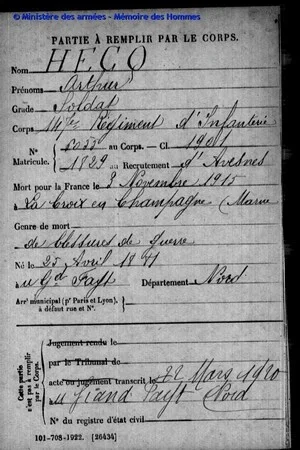 © Ministère des armées - Mémoire des Hommes
PARTIE À REMPLIR PAR LE CORPS.
Nom HECQ
Prénoms Arthur
Grade Soldat
Corps Régiment d'Infanterie
N° au Corps. — Cl 1901
Matricule. 1829 au Recrutement d'Avesnes
Mort pour la France le 8 Novembre 1915
La Croix en Champagne (Marne
Genre de mort
de blessures de guerre
Né le 25 Avril
à Gd Fayt Département Nord
Arr' municipal (p' Paris et Lyon),
à défaut rue et N°.
Cette partie
n'est pas à remplir
par le Corps.
Jugement rendu le
par le Tribunal de
acte ou jugement transcrit le 22 Mars 1920
à Grand Fayt Nord
N° du registre d'état civil
101-708-1922. [26434]